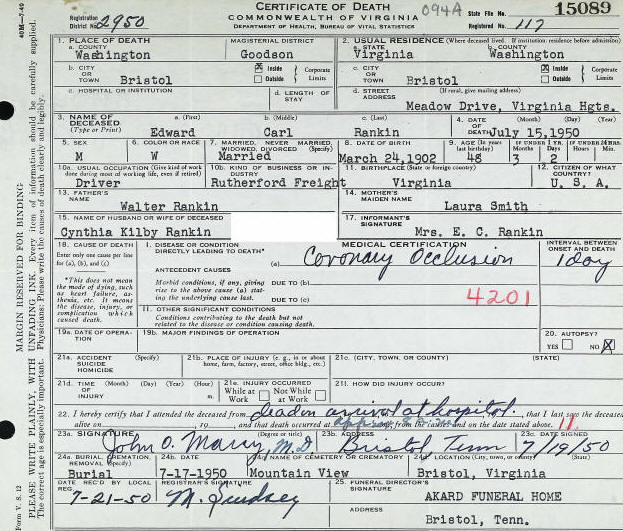 CERTIFICATE OF DEATH
COMMONWEALTH OF VIRGINIA
DEPARTMENT OF HEALTH, BUREAU OF VITAL STATISTICS
094A
State File No. 15089
Registered No. 117
Registration District No. 2950
40M—7-49
1. PLACE OF DEATH
a. COUNTY Washington
MAGISTERIAL DISTRICT Goodson
2. USUAL RESIDENCE (Where deceased lived. If institution: residence before admission)
a. STATE Virginia
b. COUNTY Washington
b. CITY OR TOWN Bristol
Inside Outside Corporate Limits
c. CITY OR TOWN Bristol
Inside Outside Corporate Limits
c. HOSPITAL OR INSTITUTION
d. LENGTH OF STAY
d. STREET ADDRESS (If rural, give mailing address)
Meadow Drive, Virginia Hgts.
3. NAME OF DECEASED (Type or Print)
a. (First) Edward
b. (Middle) Carl
c. (Last) Rankin
4. DATE OF DEATH July 15,1950
5. SEX M
6. COLOR OR RACE W
7. MARRIED, NEVER MARRIED, WIDOWED, DIVORCED (Specify) Married
8. DATE OF BIRTH March 24,1902
9. AGE (In years last birthday) 48
IF UNDER 1 YR. Months 3 Days 2
IF UNDER 24 HRS. Hours Min.
10a. USUAL OCCUPATION (Give kind of work done during most of working life, even if retired) Driver
10b. KIND OF BUSINESS OR INDUSTRY Rutherford Freight
11. BIRTHPLACE (State or foreign country) Virginia
12. CITIZEN OF WHAT COUNTRY? U. S. A.
13. FATHER'S NAME Walter Rankin
14. MOTHER'S MAIDEN NAME Laura Smith
15. NAME OF HUSBAND OR WIFE OF DECEASED Cynthia Kilby Rankin
17. INFORMANT'S SIGNATURE Mrs. E. C. Rankin
18. CAUSE OF DEATH
Enter only one cause per line for (a), (b), and (c)
*This does not mean the mode of dying, such as heart failure, asthenia, etc. It means the disease, injury, or complication which caused death.
MEDICAL CERTIFICATION
INTERVAL BETWEEN ONSET AND DEATH
I. DISEASE OR CONDITION DIRECTLY LEADING TO DEATH* (a) Coronary Occlusion 1 day
ANTECEDENT CAUSES
Morbid conditions, if any, giving rise to the above cause (a) stating the underlying cause last.
DUE TO (b)
DUE TO (c)
4201
II. OTHER SIGNIFICANT CONDITIONS
Conditions contributing to the death but not related to the disease or condition causing death.
19a. DATE OF OPERATION
19b. MAJOR FINDINGS OF OPERATION
20. AUTOPSY?
YES NO X
21a. ACCIDENT SUICIDE HOMICIDE (Specify)
21b. PLACE OF INJURY (e. g., in or about home, farm, factory, street, office bldg., etc.)
21c. (CITY, TOWN, OR COUNTY) (STATE)
21d. TIME OF INJURY (Month) (Day) (Year) (Hour) m.
21e. INJURY OCCURRED
While at Work Not While at Work
21f. HOW DID INJURY OCCUR?
22. I hereby certify that I attended the deceased from dead on arrival at hospital. that I last saw the deceased
alive on 19 , and that death occurred at from the causes and on the date stated above. 11
23a. SIGNATURE (Degree or title) John O. M.D
23b. ADDRESS Bristol Tenn
23c. DATE SIGNED 7/19/50
24a. BURIAL, CREMATION, REMOVAL (Specify) Burial
24b. DATE 7-17-1950
24c. NAME OF CEMETERY OR CREMATORY Mountain View
24d. LOCATION (City, town, or county) (State) Bristol, Virginia
DATE REC'D BY LOCAL REG. 7-21-50
REGISTRAR'S SIGNATURE M.
25. FUNERAL DIRECTOR'S SIGNATURE AKARD FUNERAL HOME
ADDRESS Bristol, Tenn.
MARGIN RESERVED FOR BINDING
PLEASE WRITE PLAINLY, WITH UNFADING INK. Every item of information should be carefully supplied.
The correct age is especially important. Physicians: Please write the causes of death clearly and legibly.
Form V. S. 12